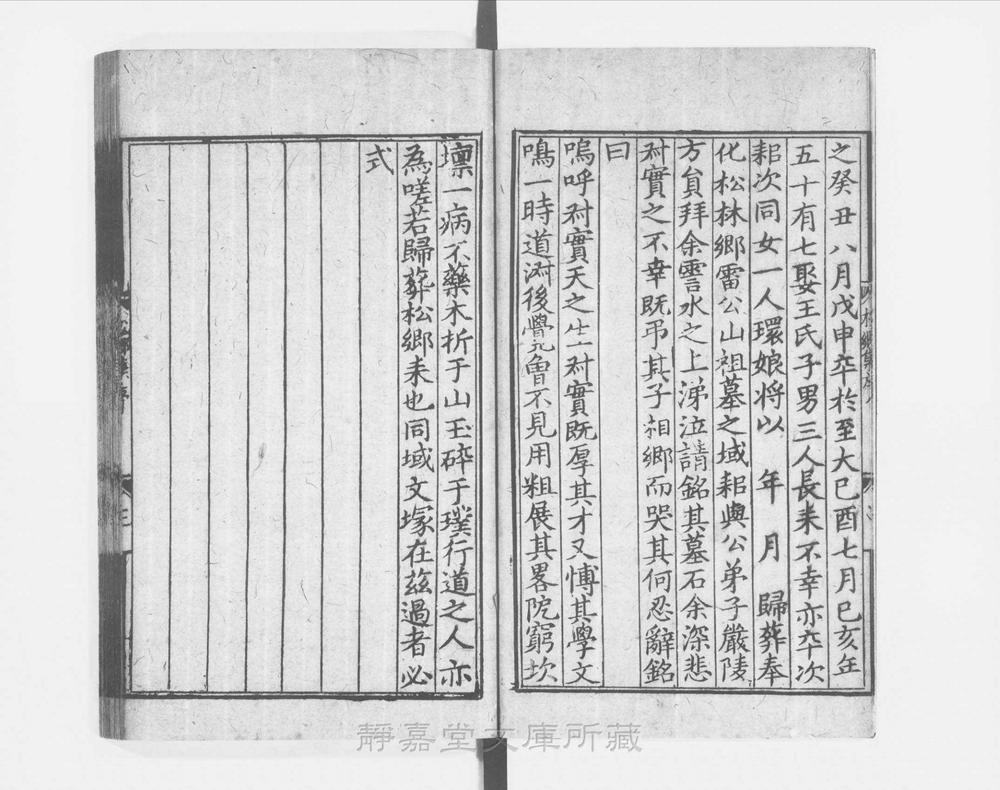 之癸丑八月戊申卒於至大己酉七月己亥年
五十有七娶王氏子男三人長耒不幸亦卒次
耜次同女一人環娘将以　年　月　歸葬奉
化松林鄉雷公山祖墓之域耜與公弟子嚴陵
方負拜余霅水之上涕泣請銘其墓石余深悲
尌實之不幸既弔其子相鄉而哭其何忍辭銘
曰
嗚呼尌實天之生尌實既厚其才又博其學文
鳴一時道淑後覺兀魯不見用粗展其畧阨窮坎
壈一病不藥木折于山玉碎于璞行道之人亦
為嗟若歸葬松鄉耒也同域文塚在茲過者必
式
松鄉集序
三
靜嘉堂文庫所藏